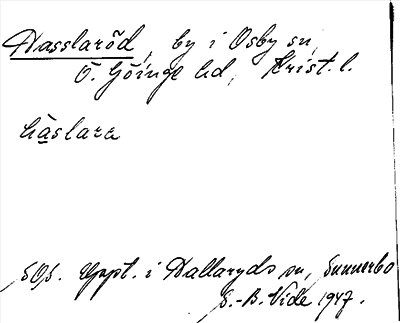 Hasslaröd, by i Osby sn,
Ö. Göinge hd, Krist. l.
häslara
SOS. Uppt. i Hallaryds sn, Sunnerbo
S.-B. Vide 1947.